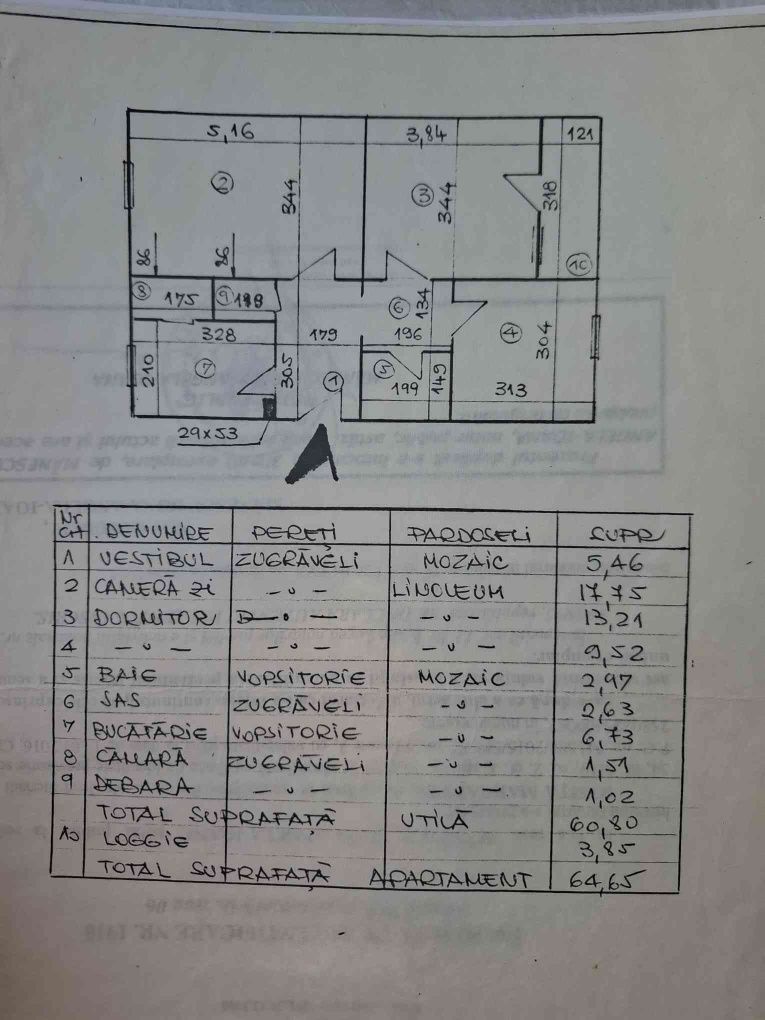 5,16 3,84 121
2 344 3 344 318
86 86 10
8 175 9 118 6 134
328 179 196 4 304
210 7 305 1 5 199 149 313
29x53
Nr CRT DENUMIRE PEREȚI PARDOSELI SUPR
1 VESTIBUL ZUGRĂVELI MOZAIC 5,46
2 CAMERĂ ZI — " — LINOLEUM 17,75
3 DORMITOR — " — — " — 13,21
4 — " — — " — — " — 9,52
5 BAIE VOPSITORIE MOZAIC 2,97
6 SAS ZUGRĂVELI — " — 2,63
7 BUCĂTĂRIE VOPSITORIE — " — 6,73
8 CĂMARĂ ZUGRĂVELI — " — 1,51
9 DEBARA — " — — " — 1,02
TOTAL SUPRAFAȚĂ UTILĂ 60,80
10 LOGGIE 3,85
TOTAL SUPRAFAȚĂ APARTAMENT 64,65